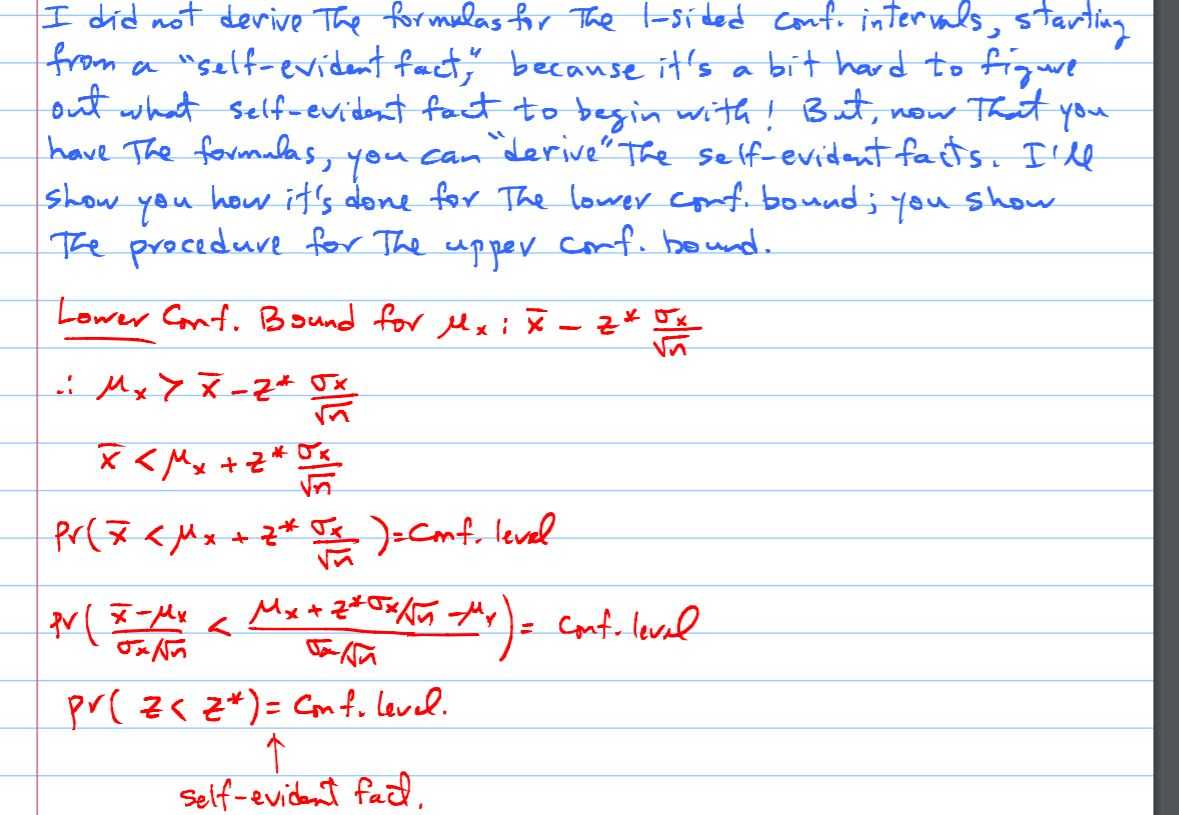 I did not derive The formulas for The 1-sided conf. intervals, starting
from a "self-evident fact," because it's a bit hard to figure
out what self-evident fact to begin with! But, now That you
have The formulas, you can "derive" The self-evident facts. I'll
show you how it's done for The lower conf. bound; you show
The procedure for The upper conf. bound.
Lower Conf. Bound for μₓ : x̄ - z* σₓ/√n
∴ μₓ > x̄ - z* σₓ/√n
x̄ < μₓ + z* σₓ/√n
pr( x̄ < μₓ + z* σₓ/√n ) = Conf. level
pr( (x̄ - μₓ)/(σₓ/√n) < (μₓ + z* σₓ/√n - μₓ)/(σₓ/√n) ) = Conf. level
pr( z < z* ) = Conf. Level.
↑
self-evident fact.